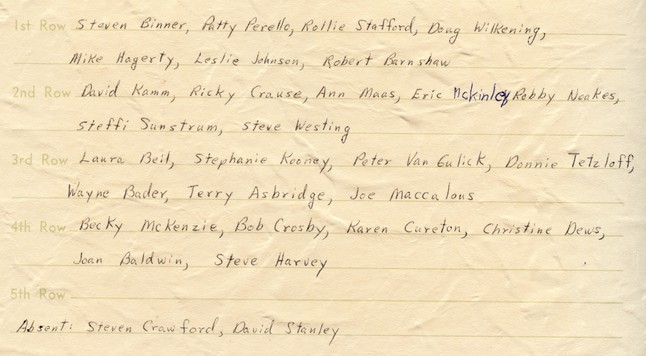 1st Row Steven Binner, Patty Perello, Rollie Stafford, Doug Wilkening,
Mike Hagerty, Leslie Johnson, Robert Barnshaw
2nd Row David Kamm, Ricky Crause, Ann Maas, Eric McKinley Robby Noakes,
Steffi Sunstrum, Steve Westing
3rd Row Laura Beil, Stephanie Kooney, Peter Van Gulick, Donnie Tetzloff,
Wayne Bader, Terry Asbridge, Joe Maccalous
4th Row Becky McKenzie, Bob Crosby, Karen Cureton, Christine Dews,
Joan Baldwin, Steve Harvey
5th Row
Absent: Steven Crawford, David Stanley